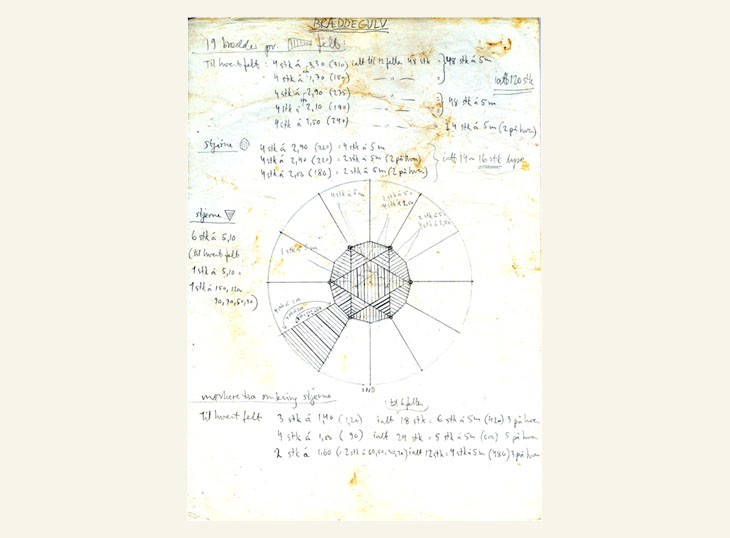 BRÆDDEGULV
19 brædder pr. felt:
Til hvert felt: 4 stk á 3,30 (310) ialt til 12 felter 48 stk = 48 stk á 5m
4 stk á 1,70 (150) — " —
ialt 120 stk
4 stk á 2,90 (275) — " —
4 stk á 2,10 (190) — " — 48 stk á 5m
4 stk á 2,50 (240) 24 stk á 5m (2 på hver)
stjerne 4 stk á 2,90 (220) = 4 stk á 5m
4 stk á 2,40 (220) = 2 stk á 5m (2 på hver)
4 stk á 2,00 (180) = 2 stk á 5m (2 på hver)
ialt 14 ~ 16 stk lyse
stjerne
6 stk á 5,10
(til hvert felt
1 stk á 5,10 =
1 stk á 150, 120
90, 70, 50, 30)
4 stk á 5m
2 stk á 5m
1 stk á 5m
IND
mørkere træ omkring stjerne
til 6 felter
Til hvert felt 3 stk á 1,40 (1,20) ialt 18 stk = 6 stk á 5m (420) 3 på hver
4 stk á 1,00 (90) ialt 24 stk = 5 stk á 5m (500) 5 på hver
2 stk á 1,60 ialt 12 stk = 4 stk á 5m (480) 3 på hver